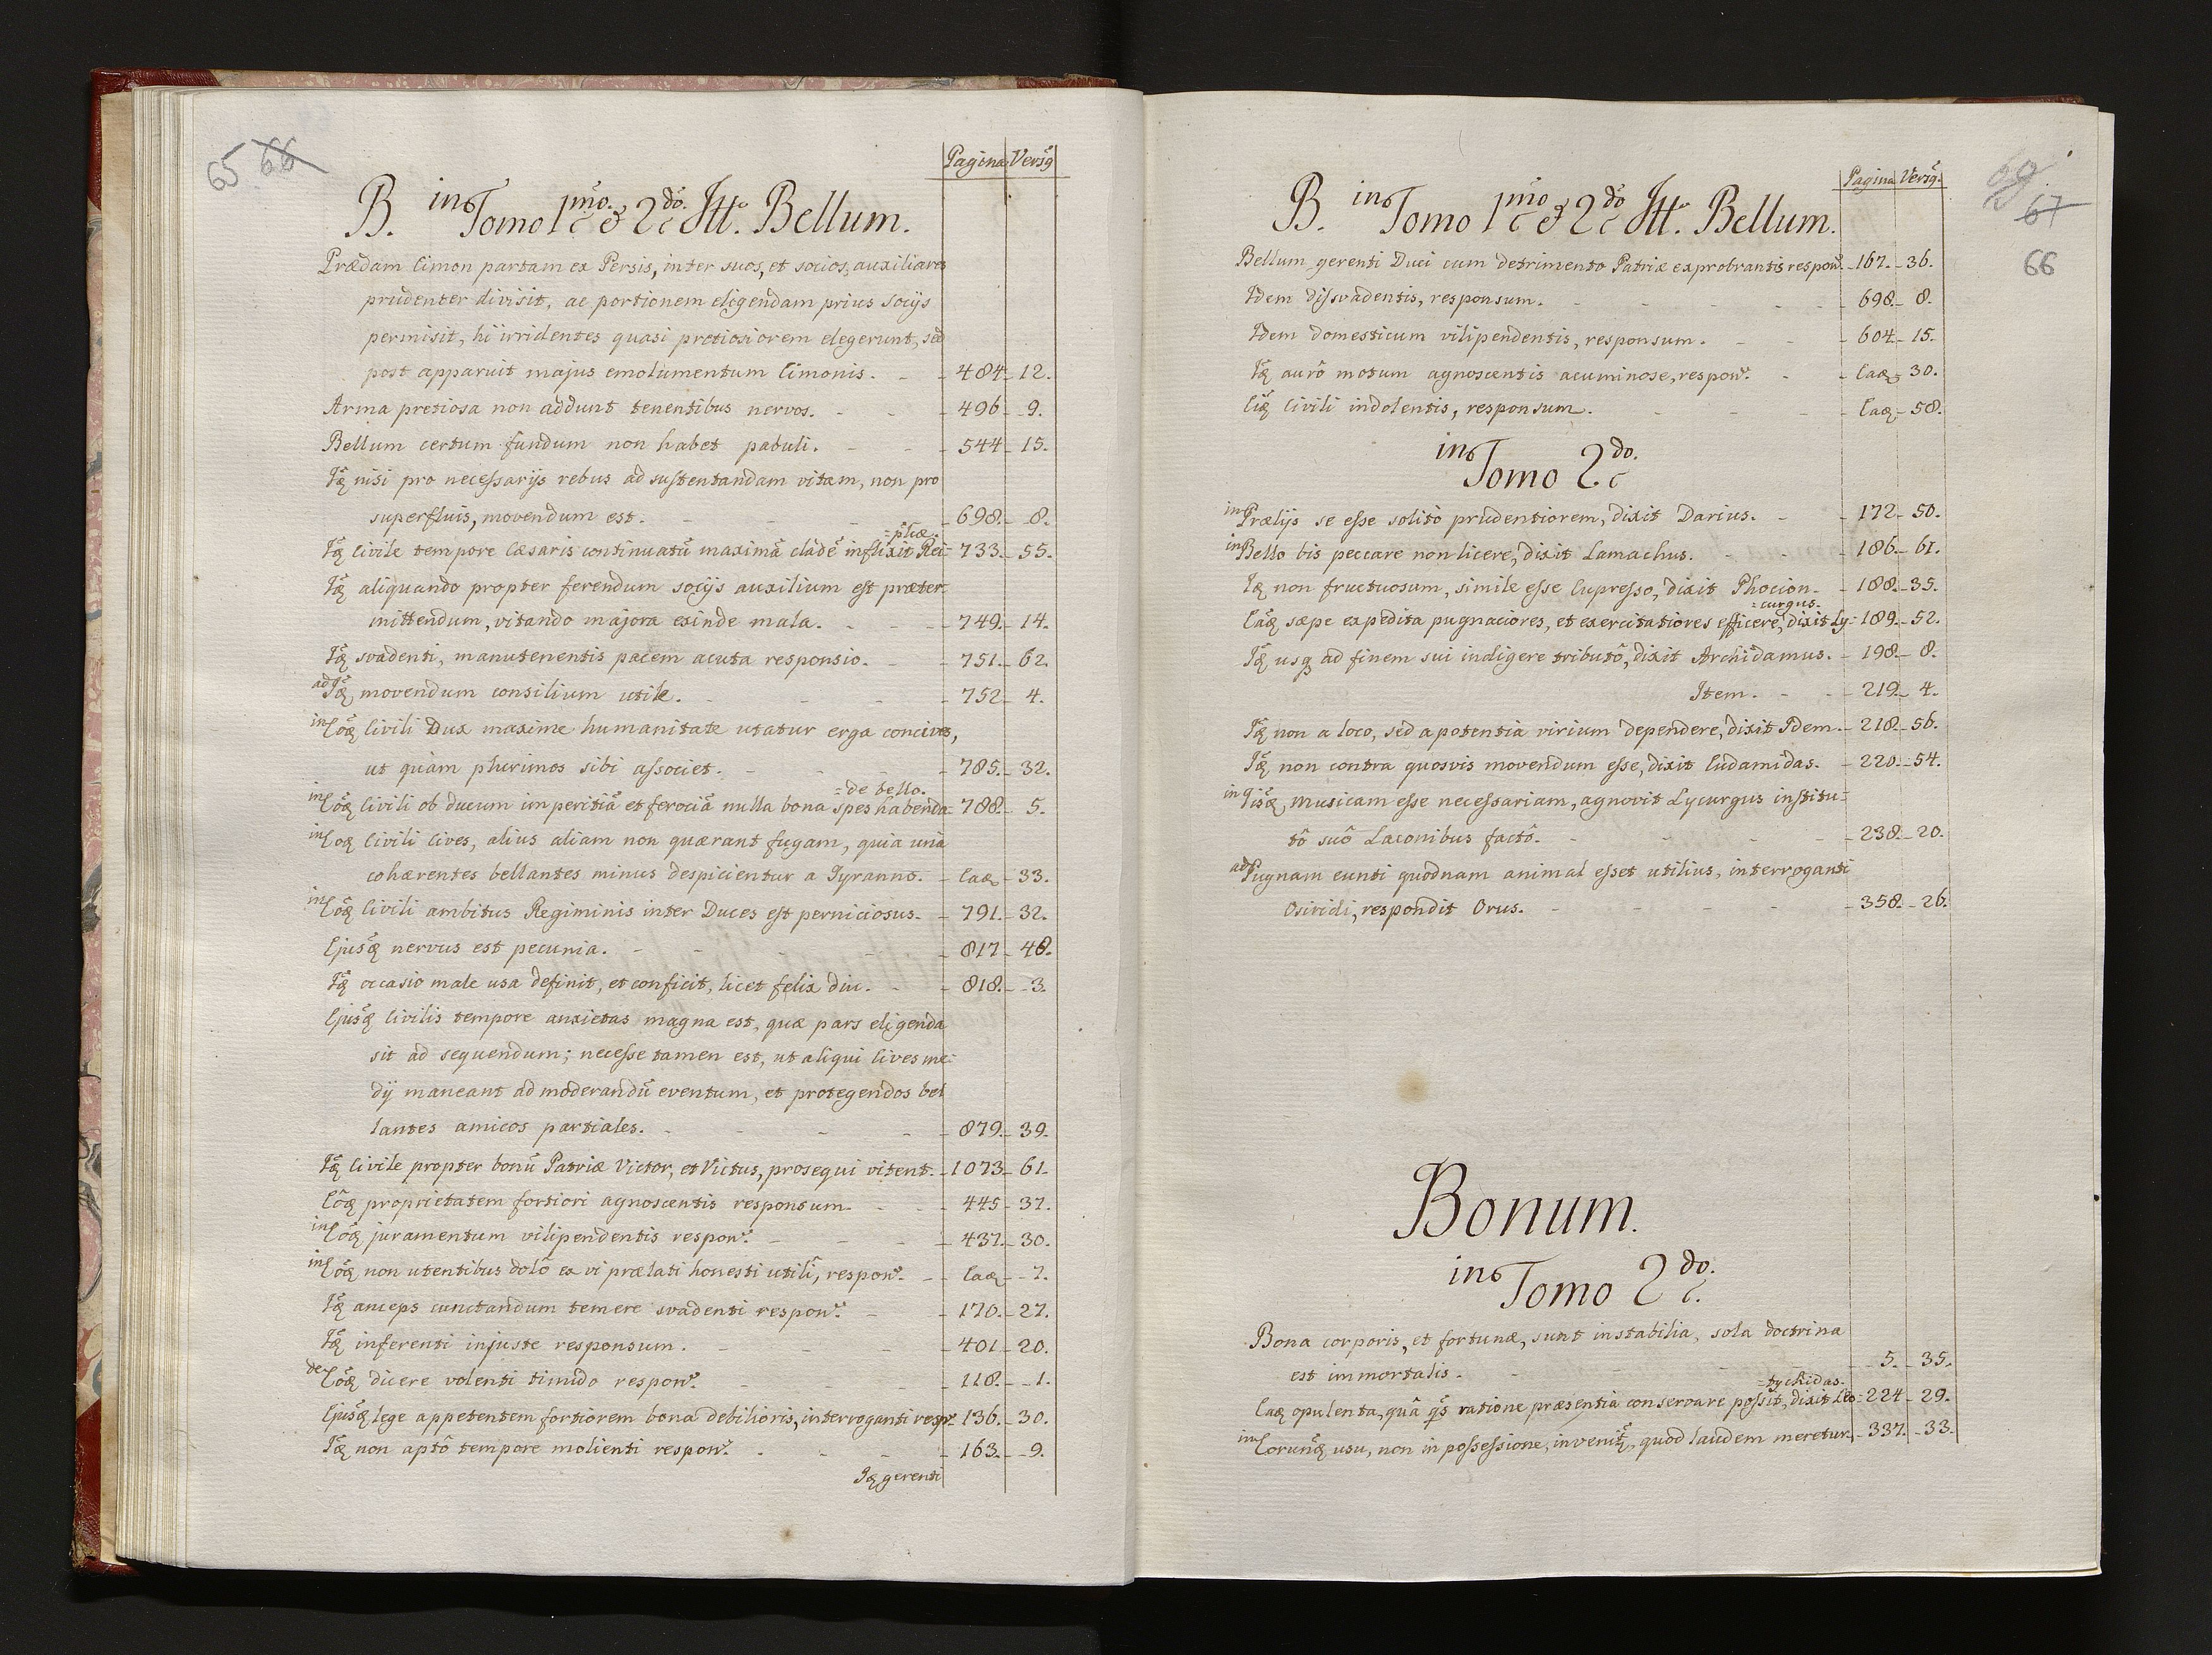 65 66
Pagina Versq̃
B. in Tomo 1mo. & 2do. Itt. Bellum.
Prædam Cimon partam ex Persis, inter suos, et socios, auxiliares
prudenter divisit, ac portionem eligendam prius socijs
permisit, hi irridentes quasi pretiosiorem elegerunt, sed
post apparuit majus emolumentum Cimonis. - - 484 - 12.
Arma pretiosa non addunt tenentibus nervos. - - 496 - 9.
Bellum certum fundum non habet pabuli. - - 544 - 15.
Iq̃ nisi pro necessarijs rebus ad sustentandam vitam, non pro
superfluis, movendum est. - - 698. - 8.
=plicæ.
Iq̃ civile tempore Cæsaris continuatũ maximã cladẽ inflixit Rei= 733. - 55.
Iq̃ aliquando propter ferendum socijs auxilium est præter-
mittendum, vitando majora exinde mala. - - 749. - 14.
Iq̃ svadenti, manutenentis pacem acuta responsio. - 751. - 62.
ad Iq̃ movendum consilium utile. - - 752 - 4.
in Eõq̃ Civili Dux maxime humanitate utatur erga concives,
ut quàm plurimos sibi associet. - - 785. - 32.
=de bello.
in Eõq̃ Civili ob ducum imperitiã et ferociã nulla bona spes habenda= 788. - 5.
in Eoq̃ Civili Cives, alius aliam non quærant fugam, quia unà
cohærentes bellantes minus despicientur a Tyranno. - Eaq̃ - 33.
in Eõq̃ Civili ambitus Regiminis inter Duces est perniciosus. - 791. - 32.
Ejusq̃ nervus est pecunia. - - 817 - 48.
Iq̃ occasio male usa definit, et conficit, licet felix diu. - 818. - 3.
Ejusq̃ Civilis tempore anxietas magna est, quæ pars eligenda
sit ad sequendum; necesse tamen est, ut aliqui Cives me-
dij maneant ad moderandũ eventum, et protegendos bel
lantes amicos partiales. - - 879. - 39.
Iq̃ Civile propter bonũ Patriæ Victor, et Victus, prosequi vitent. - 1073 - 61.
Eõq̃ proprietatem fortiori agnoscentis responsum. - - 445 - 37.
in Eõq̃ juramentum vilipendentis respon̄. - - 437. - 30.
in Eõq̃ non utentibus dolô ex vi prælati honesti utili, respon̄. - Eaq̃ - 7.
Iq̃ anceps cunctandum temere svadenti respon̄. - - 170. - 27.
Iq̃ inferenti injuste responsum. - - 401 - 20.
de Eõq̃ dicere volenti timido respon̄. - - 118. - 1.
Ejusq̃ lege appetentem fortiorem bona debilioris, interroganti resp̄. 136. - 30.
Iq̃ non aptô tempore molienti respon̄. - - 163. - 9.
Iq̃ gerenti
Pagina Versq̃.
67
66
B. in Tomo 1mo & 2do Itt. Bellum.
Bellum gerenti Duci cum detrimento Patriæ exprobrantis respon̄. - 167. - 36.
Idem dissvadentis, responsum. - - 698. - 8.
Idem domesticum vilipendentis, responsum. - - 604 - 15.
Iq̃ aurô motum agnoscentis acuminose, respon̄. - Eaq̃ - 30.
Eiq̃ Civili indolentis, responsum. - - Eaq̃ - 58.
in Tomo 2do.
in Prælijs se esse solitò prudentiorem, dixit Darius. - 172 - 50.
in Bello bis peccare non licere, dixit Lamachus. - 186. - 61.
Iq̃ non fructuosum, simile esse Cupresso, dixit Phocion. - 188. - 35.
=curgus.
Eãq̃ sæpe expedita pugnaciores, et exercitatiores efficere, dixit Ly= 189. - 52.
Iq̃ usq̃ ad finem sui indigere tributô, dixit Archidamus. - 198. - 8.
Item. - - 219. - 4.
Iq̃ non a loco, sed a potentia virium dependere, dixit Idem. - 218. - 56.
Iq̃ non contra quosvis movendum esse, dixit Eudamidas. - 220. - 54.
in Iisq̃ Musicam esse necessariam, agnovit Lycurgus institu=
tô suô Laconibus factô. - - 238. - 20.
ad Pugnam eunti quodnam animal esset utilius, interroganti
Osiridi, respondit Orus. - - 358. - 26.
Bonum.
in Tomo 2do.
Bona corporis, et fortunæ, sunt instabilia, sola doctrina
est immortalis. - - 5. - 35.
=tychidas.
Eaq̃ opulenta, quâ q̃s ratione præsentia conservare possit, dixit Leo= 224 - 29.
in Eorunq̃ usu, non in possessione, invenitq̃, quod laudem meretur. - 337. - 33.